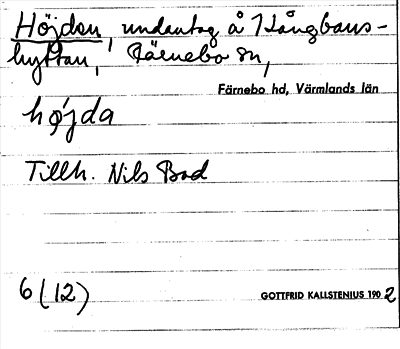 Höjden, undantag å Hångbans-
hyttan, Färnebo sn,
Färnebo hd, Värmlands län
højda
Tillh. Nils Bod
6 (12)
GOTTFRID KALLSTENIUS 1902